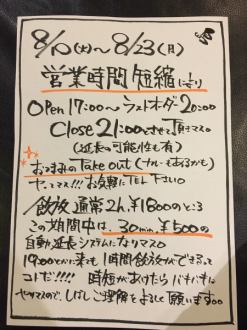 8/10(火)〜8/23(月)
営業時間短縮により
OPEN 17:00〜ラストオーダー20:00
Close 21:00とさせて頂きます。
(延長の可能性も有)
おつまみのTake out(カレーもあるかも)
やってマス!!! お気軽にTEL下さい。
飲放 通常2h. ¥1800のところ
この期間中は、30min. ¥500の
自動延長システムになりマス。
19:00とかに来ても1時間飲放ができるって
コトだ!!!! 時短があけたらバキバキに
やりマスので、しばしご理解をよろしく願います。